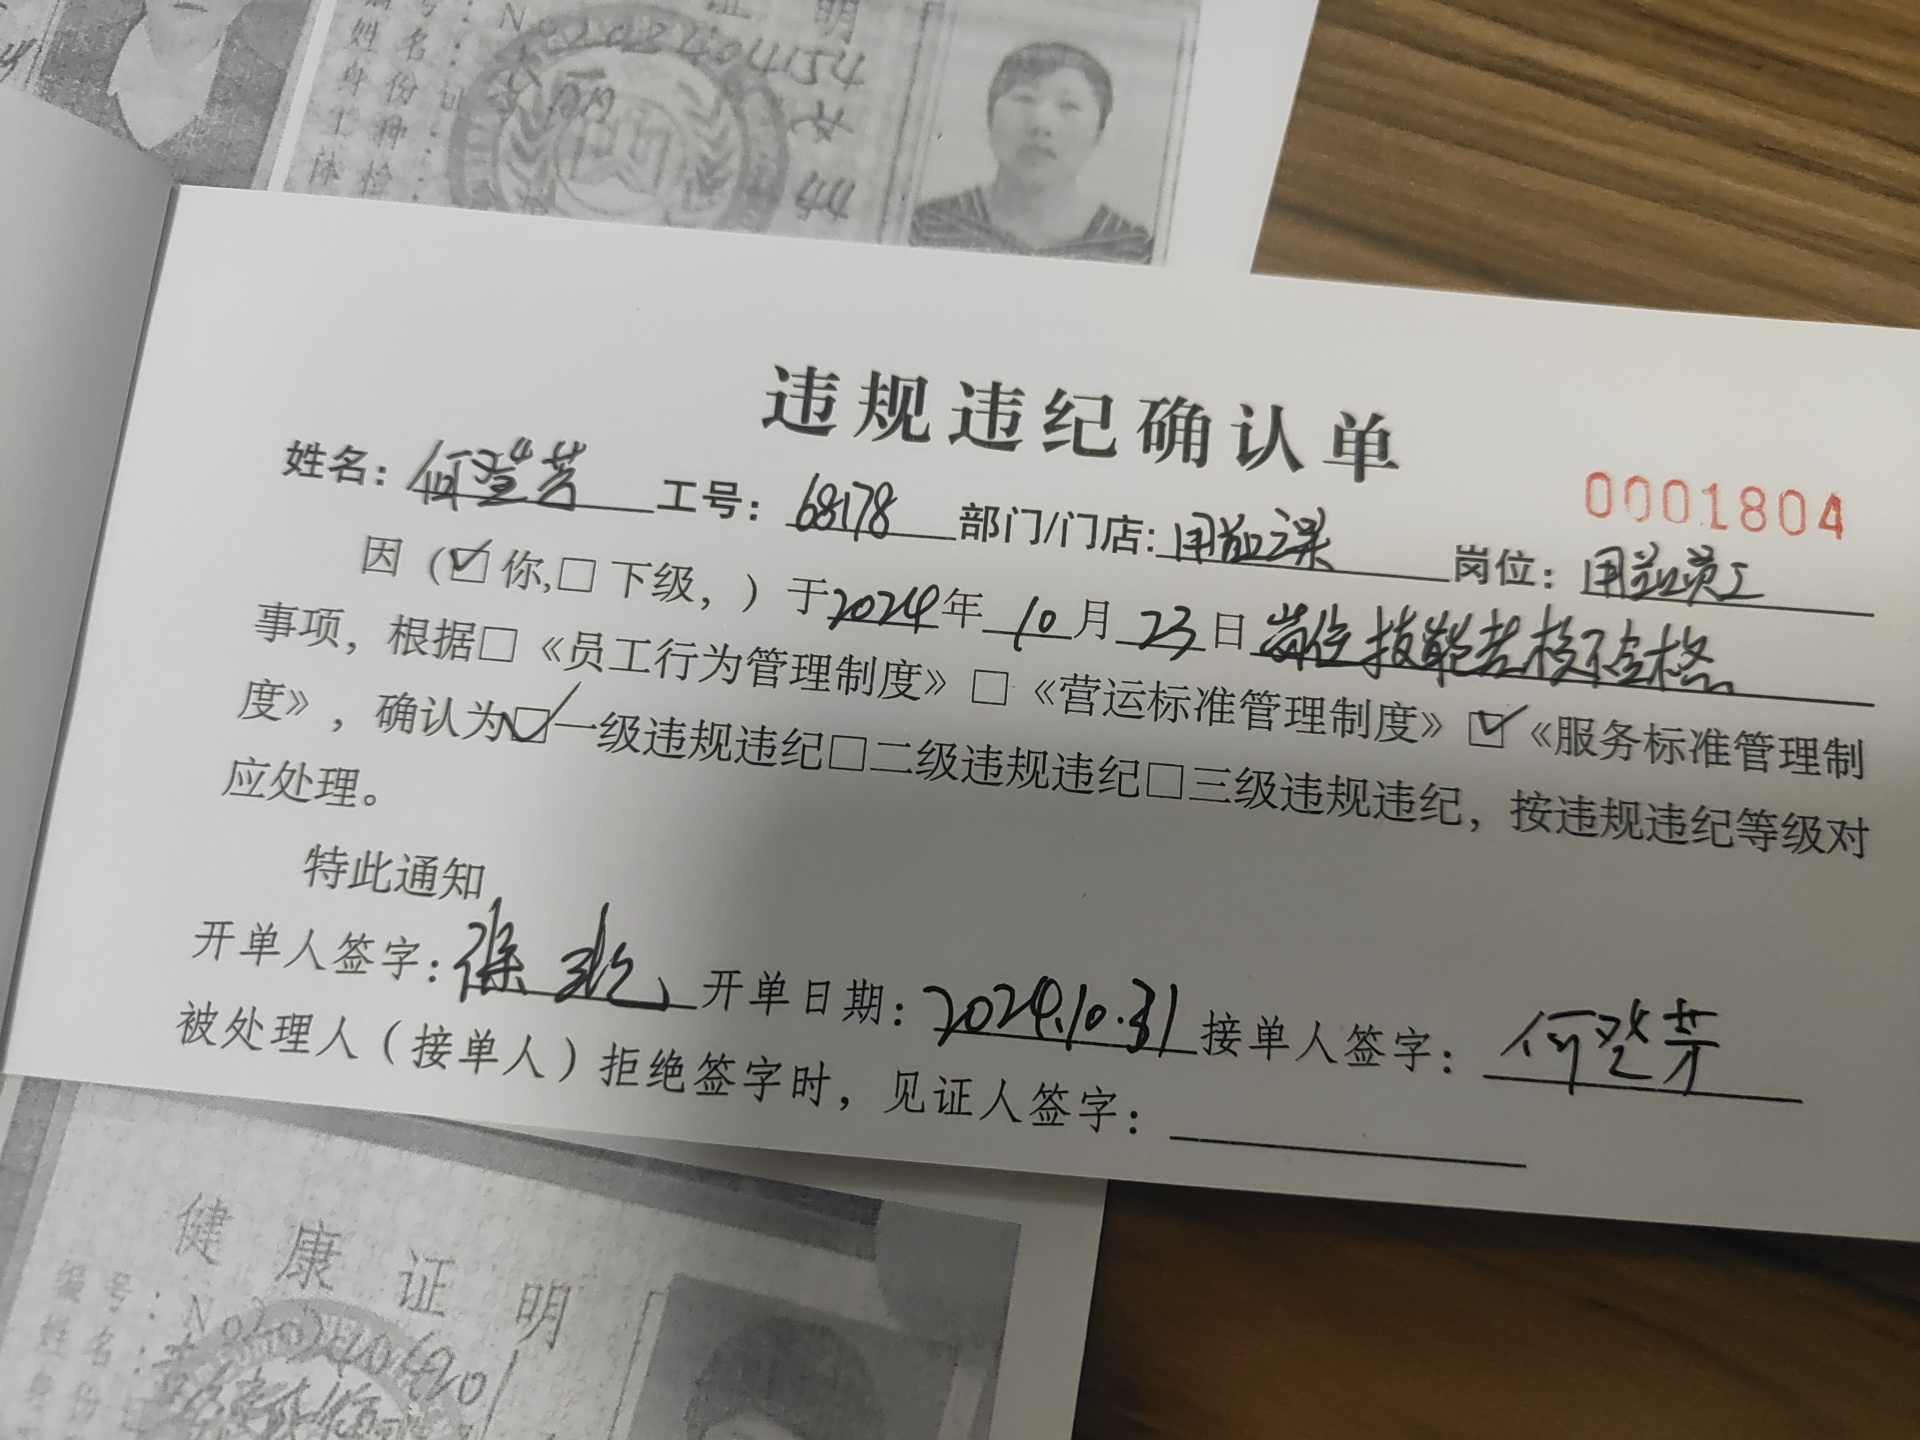 证明
编号：No202404154
姓名：
身份证：
工种：
体检：
违规违纪确认单
0001804
姓名：何登芳 工号：68178 部门/门店: 岗位：员工
因（☑你,☐下级，）于2024年10月23日岗位技能考核不合格
事项，根据☐《员工行为管理制度》☐《营运标准管理制度》☑《服务标准管理制
度》，确认为☑一级违规违纪☐二级违规违纪☐三级违规违纪，按违规违纪等级对
应处理。
特此通知
开单人签字：徐 开单日期：2024.10.31 接单人签字：何登芳
被处理人（接单人）拒绝签字时，见证人签字：
健康证明
编号：No
姓名：
身份证